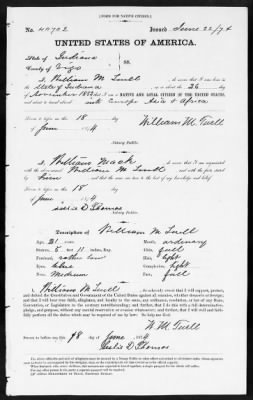 [FORM FOR NATIVE CITIZEN.]
No. 40702 Issued June 22/74
UNITED STATES OF AMERICA.
State of Indiana
County of Vigo } ss.
I, William M Tuell, do swear that I was born in
State of Indiana on the 26 day
of November 1852; that I am a NATIVE AND LOYAL CITIZEN OF THE UNITED STATES,
and about to travel abroad Europe Asia & Africa
Sworn to before me this 18 day
of June 1874
William M. Tuell
Notary Public.
I, William Mack, do swear that I am acquainted
with the above-named William M. Tuell and with the facts stated
by him and that the same are true to the best of my knowledge and belief
Sworn to before me this 18 day
of June 1874
Leslie D Thomas
Notary Public.
Description of William M Tuell
Age: 21 years Mouth: ordinary
Stature: 5 feet 11 inches, Eng. Chin: full
Forehead: rather low Hair: light
Eyes: blue Complexion: light
Nose: Medium Face: full
I, William M Tuell, do solemnly swear that I will support, protect,
and defend the Constitution and Government of the United States against all enemies, whether domestic or foreign;
and that I will bear true faith, allegiance, and loyalty to the same, any ordinance, resolution, or law of any State,
Convention, or Legislature to the contrary notwithstanding; and further, that I do this with a full determination,
pledge, and purpose, without any mental reservation or evasion whatsoever; and further, that I will well and faith-
fully perform all the duties which may be required of me by law: So help me God.
W. M. Tuell
Sworn to before me this 18 day of June 1874
Leslie D Thomas
Notary Public.